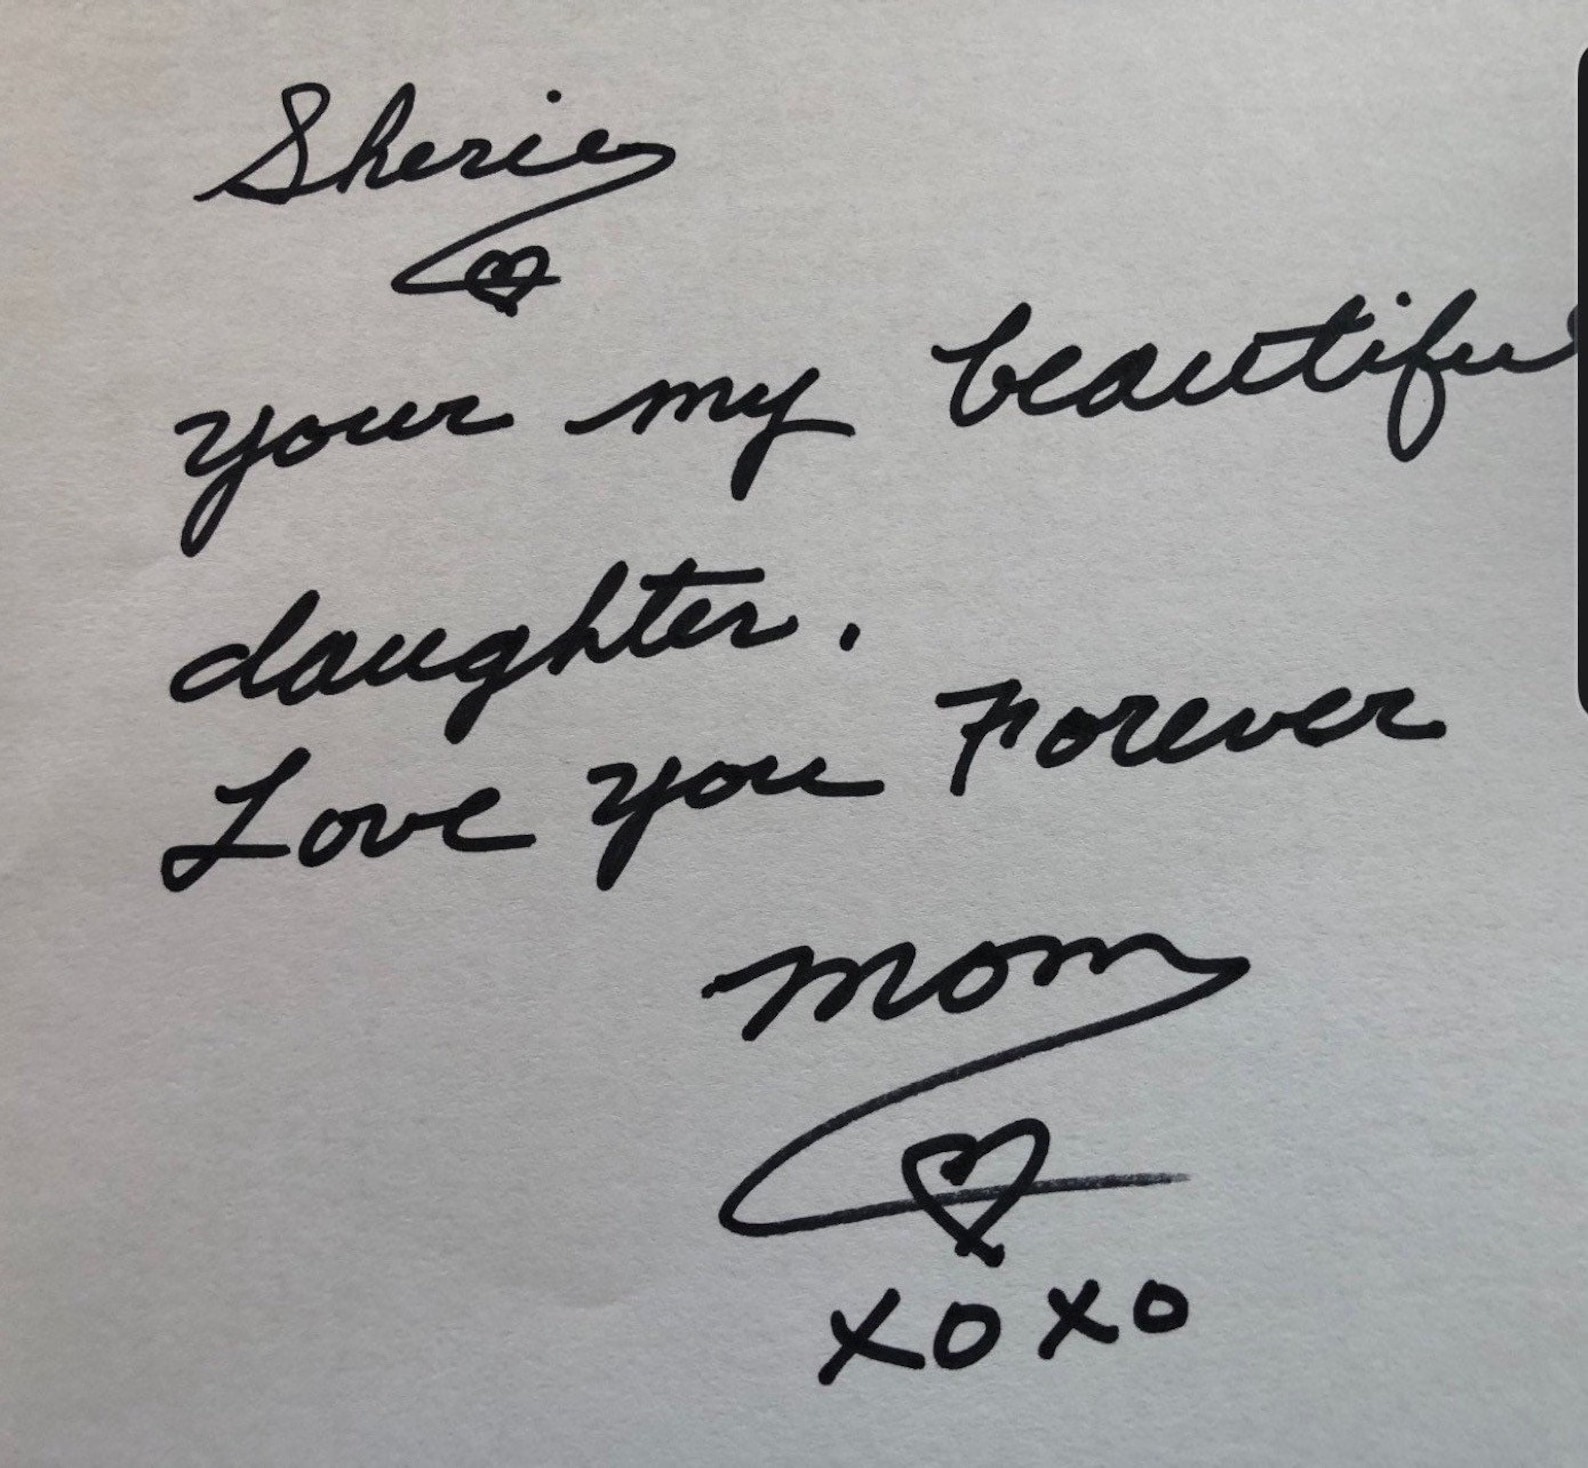 Sherie
your my beautiful
daughter.
Love you Forever
mom
xoxo